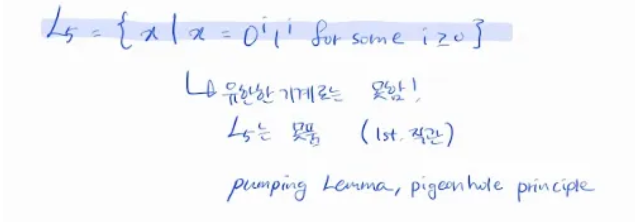 L₅ = { x | x = 0ⁱ1ⁱ for some i ≥ 0 }
↳ 유한한 기계로는 못함!
L₅는 못품 (1st. 직관)
pumping Lemma, pigeonhole principle